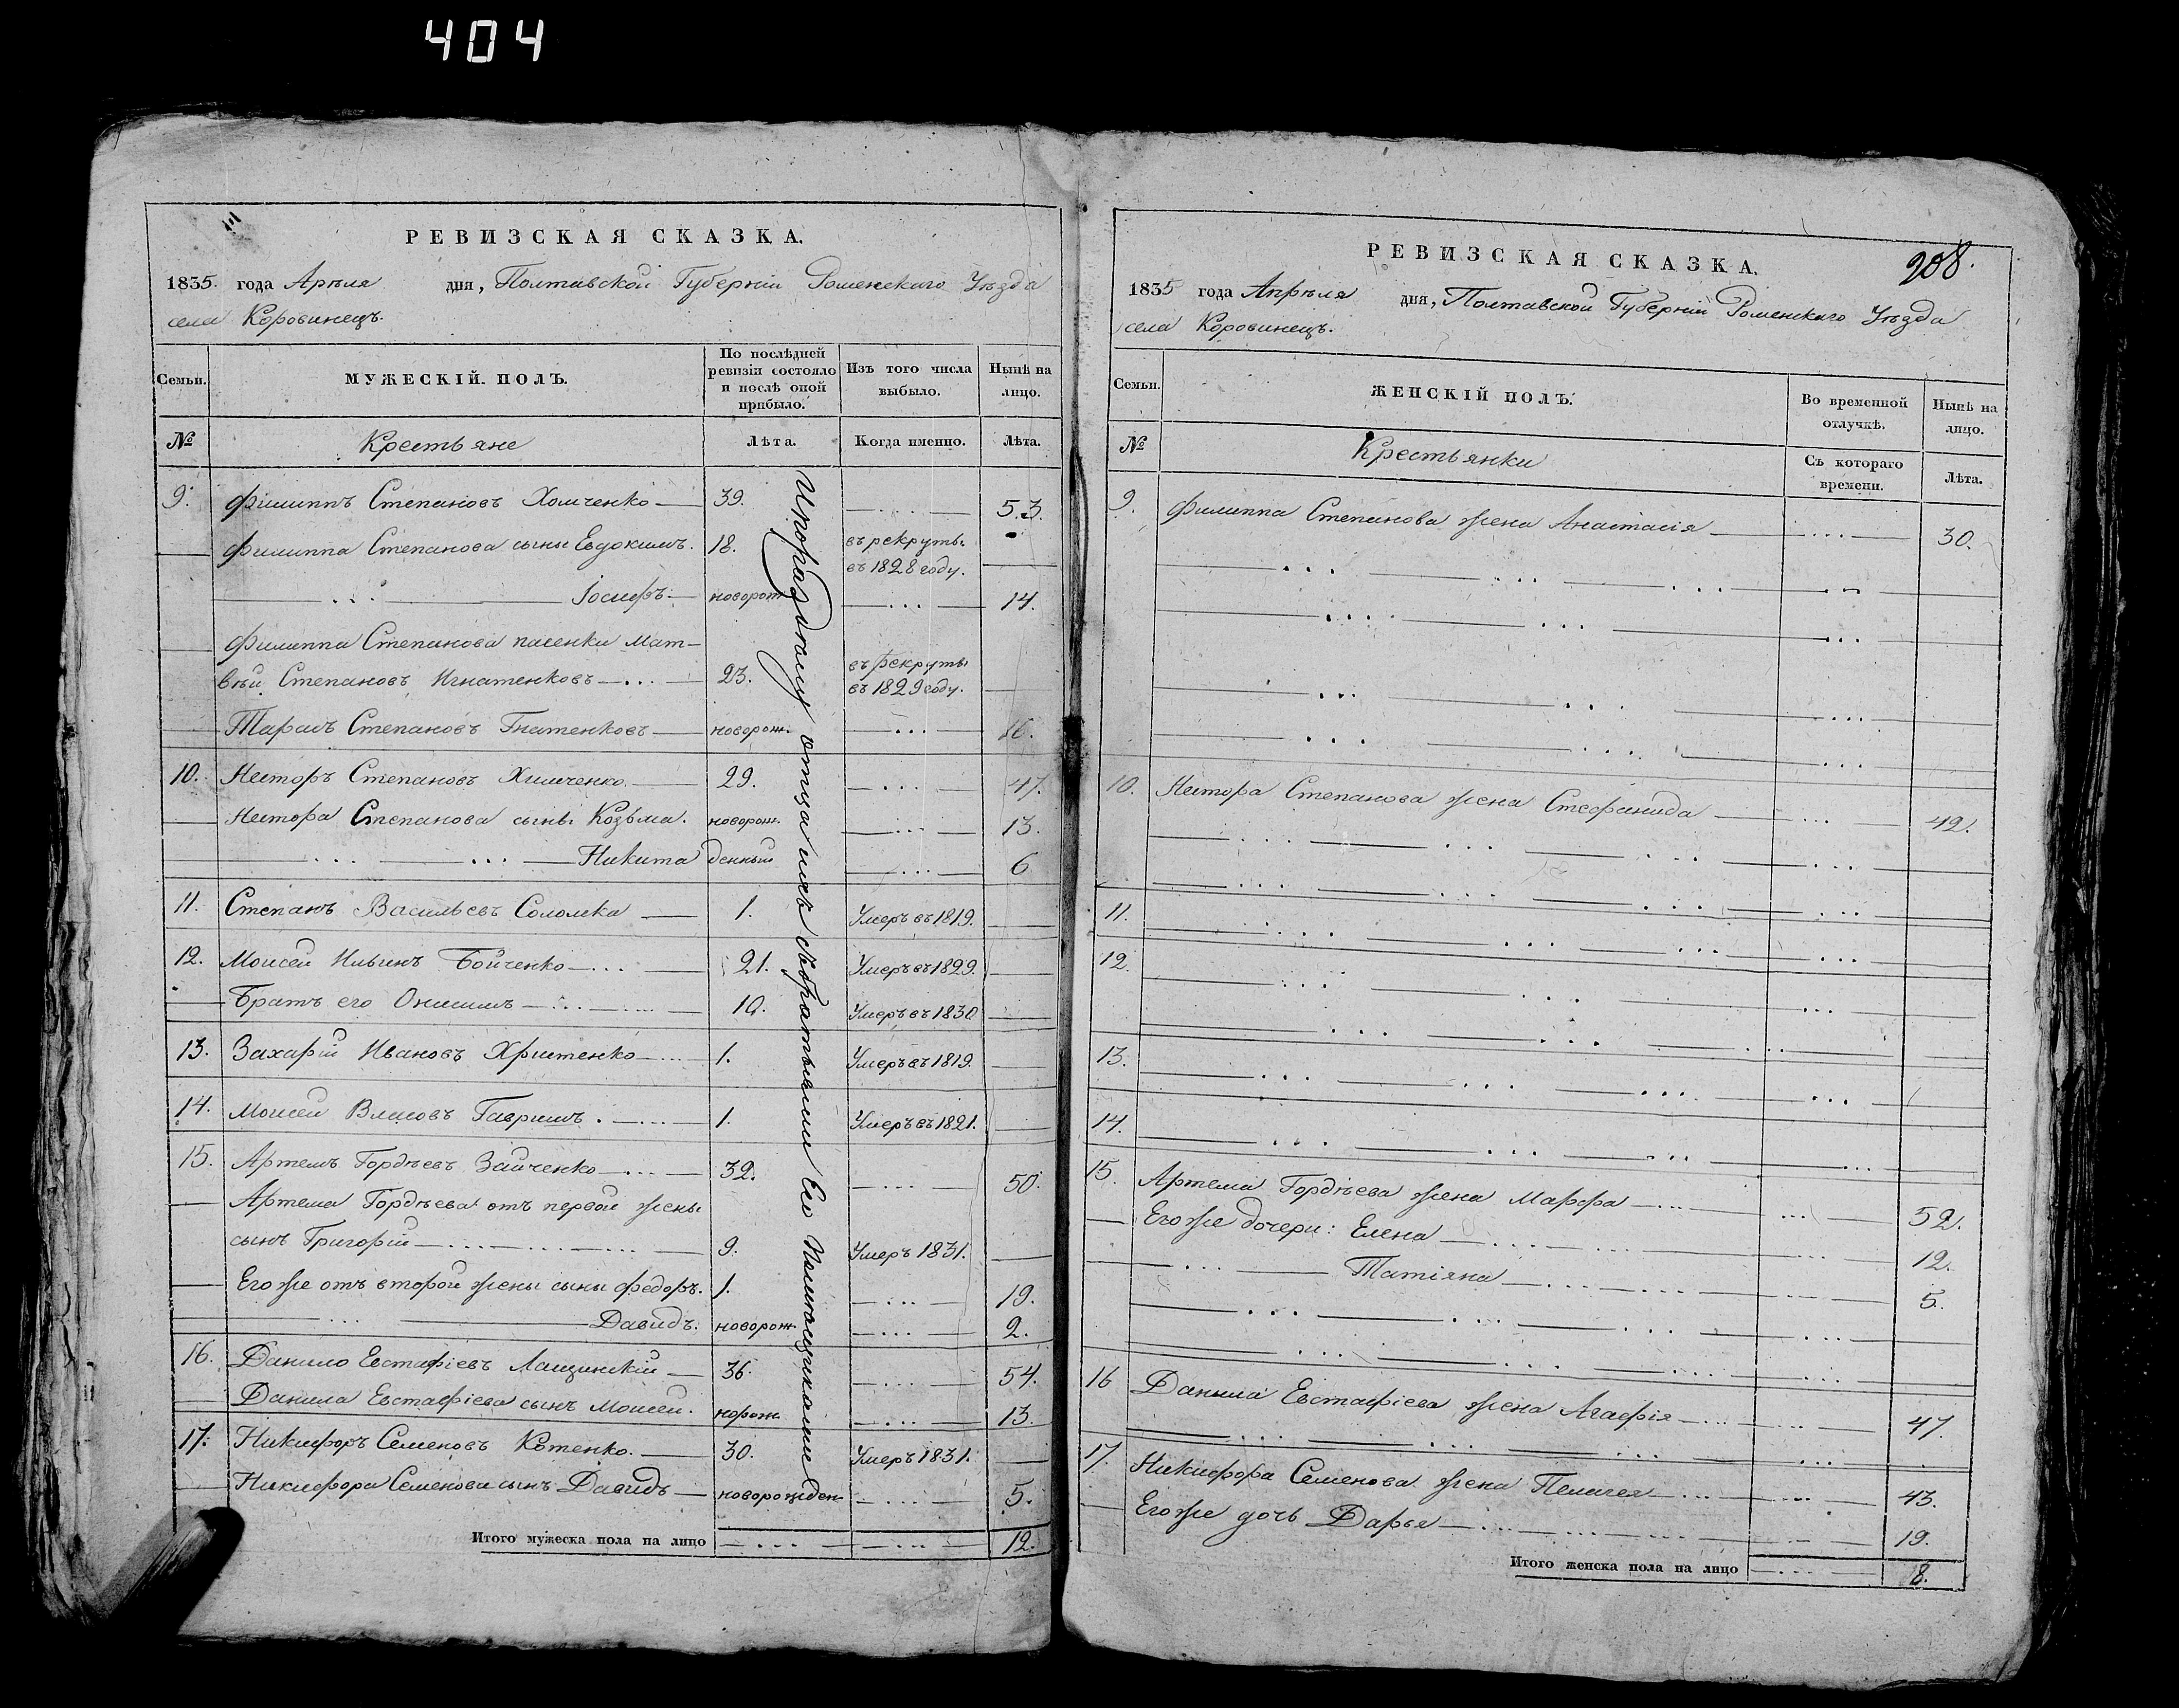 404
РЕВИЗСКАЯ СКАЗКА.
1835. года Апрѣля дня, Полтавской Губерніи Роменскаго Уѣзда
села Коровинецъ.
Семьи. МУЖЕСКІЙ ПОЛЪ. По послѣдней ревизіи состояло и послѣ оной прибыло. Изъ того числа выбыло. Нынѣ на лицо.
№ Крестьяне Лѣта. Когда именно. Лѣта.
9. Филиппъ Степановъ Хомченко 39. 53.
Филиппа Степанова сыны Евдокимъ. 18. въ рекруты въ 1828 году.
Іосифъ новорож 14.
Филиппа Степанова пасенки Мат-
вѣй Степановъ Игнатенковъ 23. въ рекруты въ 1829 году.
Тарасъ Степановъ Гнатенковъ новорож. 16.
10. Несторъ Степановъ Химченко 29. 47.
Нестора Степанова сыны Козьма. новорож. 13.
Никита денный 6
11. Степанъ Васильевъ Соломка 1. Умеръ въ 1819.
12. Моисей Ильинъ Бойченко 21. Умеръ въ 1829.
Братъ его Онисимъ 19. Умеръ въ 1830
13. Захарій Ивановъ Христенко 1. Умеръ въ 1819.
14. Моисей Власовъ Гавришъ. 1. Умеръ въ 1821.
15. Артемъ Гордѣевъ Зайченко 32. 50.
Артема Гордѣева отъ первой жены
сынъ Григорій 9. Умеръ 1831.
Его же отъ второй жены сыны Федоръ. 1. 19.
Давидъ. новорож 2.
16. Данило Евстафіевъ Лащинскій 36. 54.
Данила Евстафіева сынъ Моисей. 13.
17. Никифоръ Семеновъ Котенко. 30. Умеръ 1831.
Никифора Семенова сынъ Давидъ новорожден 5.
Итого мужеска пола на лицо 12.
отца ихъ Его Помощиками
РЕВИЗСКАЯ СКАЗКА.
908.
1835 года Апрѣля дня, Полтавской Губерніи Роменскаго Уѣзда
села Коровинецъ.
Семьи. ЖЕНСКІЙ ПОЛЪ. Во временной отлучкѣ. Нынѣ на лицо.
№ Крестьянки Съ котораго времени. Лѣта.
9. Филиппа Степанова жена Анастасія 30.
10. Нестора Степанова жена Стефанида 42.
11.
12.
13.
14.
15. Артема Гордѣева жена Марфа 52.
Его же дочери: Елена 12.
Татіяна 5.
16 Данила Евстафіева жена Агафія 47.
17. Никифора Семенова жена Пелагея 43.
Его же дочь Дарья 19.
Итого женска пола на лицо 8.